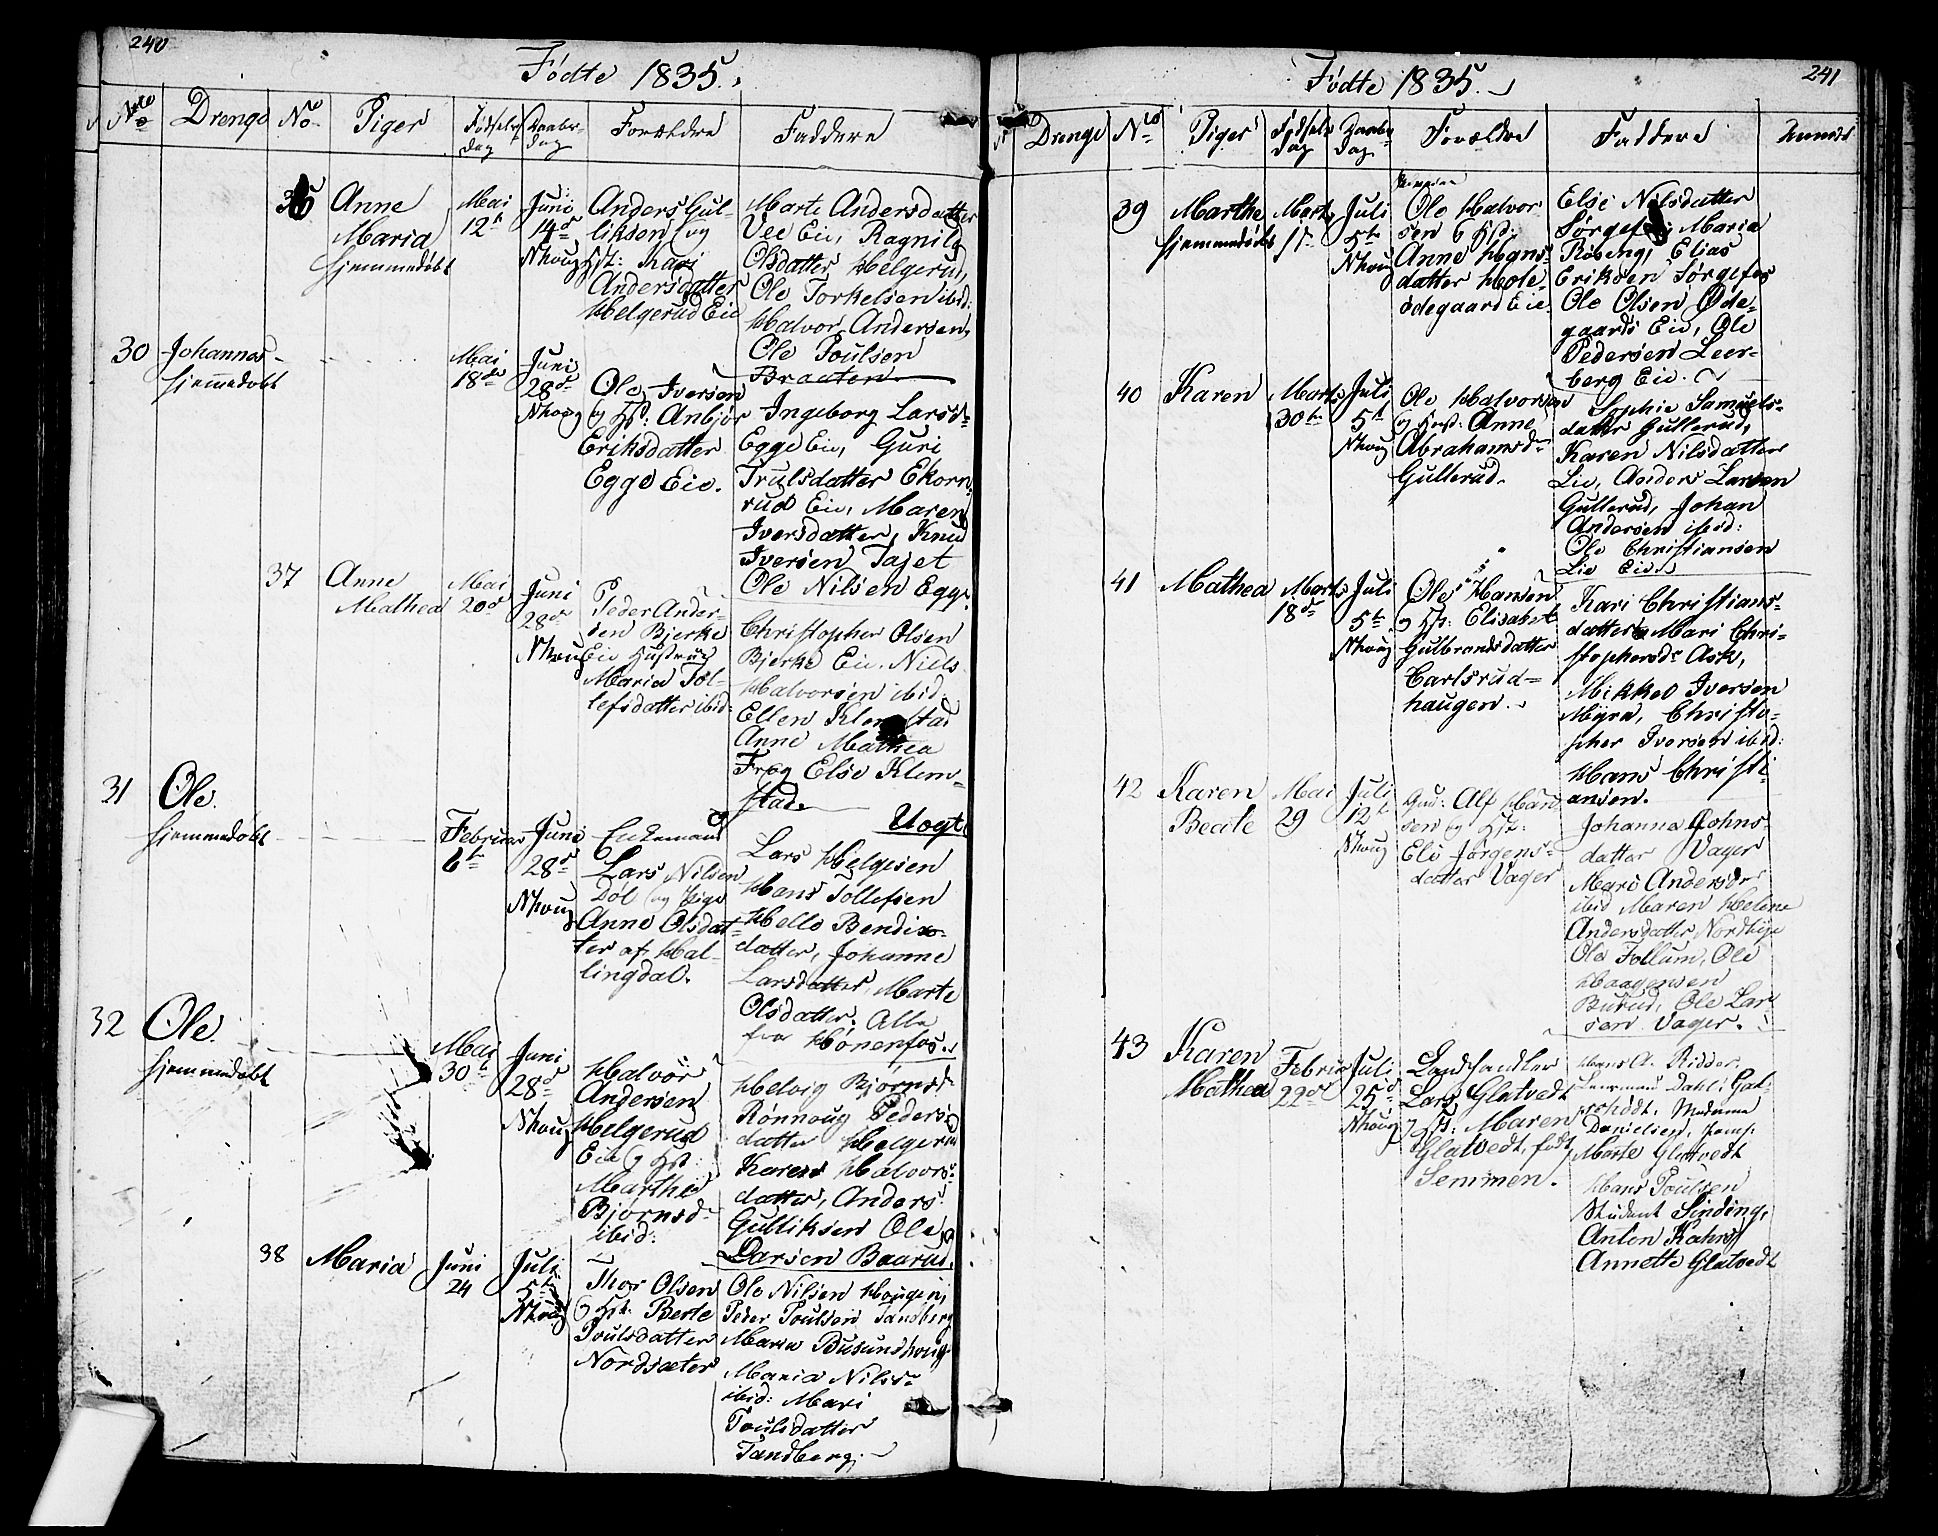 240
Fødte 1835.
No
Drenge
No
Piger
Fødsels
dag
Daabs-
dag
Forældre
Faddere
36
Anne
Maria
hjemmedøbt
Mai
12te
Juni
14de
Nhoug
Anders Gul-
liksen og
Hst: Kari
Andersdatter
Helgerud Eie
Marte Andersdatter
Vee Eie, Ragnild
Olsdatter Helgerud,
Ole Torkelsen ibid:
Halvor Andersen,
Ole Poulsen
Braaten
30
Johannes
hjemmedøbt
Mai
18de
Juni
28de
Nhoug
Ole Iversen
og Hst: Anbjør
Eriksdatter
Egge Eie.
Ingeborg Larsd-
Egge Eie, Guri
Trulsdatter Ekorn-
rud Eie, Maren
Iversdatter, Knud
Iversen Tajet
Ole Nilsen Egge.
37
Anne
Mathea
Mai
20de
Juni
28de
Nhoug
Peder Ander-
sen Bjerke
Eie Hustrue
Maria Tol-
lefsdatter ibid:
Christopher Olsen
Bjerke Eie. Niels
Halvorsen ibid:
Ellen Klemstad
Anne Mathea
Frøg Else Klem-
stad.
31
Ole.
hjemmedøbt
Februar
6te
Juni
28de
Nhoug
Enkemand
Lars Nilsen
Døl og Pige
Anne Olsdat-
ter af Hal-
lingdal.
Uogt
Lars Helgesen
Hans Tollefsen
Helle Bendix-
datter, Johanne
Larsdatter, Marte
Olsdatter. Alle
fra Hønenfos.
32
Ole.
hjemmedøbt
Mai
30te
Juni
28de
Nhoug
Halvor
Andersen
Helgerud
Eie og Hst:
Marthe
Bjørnsd-
ibid:
Helvig Bjørnsd-
Rønnoug Peders-
datter Helgerud
Karen Halvors-
datter, Anders
Gulliksen Ole
Larsen Baarud.
38
Maria
Juni
24
Juli
5te
Nhoug
Thor Olsen
og Hst: Berte
Poulsdatter
Nordsæter
Ole Nilsen Hougen,
Peder Poulsen Tandberg
Maria Busundhoug
Maria Nilsd-
ibid: Mari
Poulsdatter
Tandberg.
241
Fødte 1835.
Drenge
No
Piger
Fødsels
dag
Daabs-
dag
Forældre
Faddere
39
Marthe
hjemmedøbt
Marts
Juli
5te
Nhoug
Ole Halvor
sen og Hst:
Anne Hans-
datter Hole-
ødegaard Eie.
Else Nilsdatter
Sørgef Maria
Røseng, Elias
Eriksen Sørgefos
Ole Olsen Øde-
gaards Eie, Ole
Pedersen Leer-
berg Eie.
40
Karen
Marts
30te
Juli
5te
Nhoug
Ole Halvorsen
og Hust: Anne
Abrahamsd-
Gullerud.
Sophie Samuels-
datter Gullerud,
Karen Nilsdatter
Lie, Anders Larsen
Gullerud, Johan
Andersen ibid:
Ole Christiansen
Lie Eie.
41
Mathea
Marts
18de
Juli
5te
Nhoug
Ole Hansen
og Hst: Elisabet
Gulbrandsdatter
Carlsrud=
haugen.
Kari Christians-
datter Mari Chri-
stophersd- Ask,
Mikkel Iversen
Myra, Christo-
pher Iversen ibid:
Hans Christi-
ansen.
42
Karen
Beate
Mai
29
Juli
12te
Nhoug
Gm: Alf Han
sen og Hst:
Eli Jørgens-
datter Vager
Johanna Johns-
datter Vager
Mari Andersd-
ibid Maren Helene
Andersdatter Nordhye
Ole Follum, Ole
Haagensen
Burud, Ole Lar
sen Vager.
43
Karen
Mathea
Februar
22de
Juli
25de
Nhoug
Landhandler
Lars Glatvedt
og Hst: Maren
Glatvedt, født
Semmen.
Hans A. Ridder
Lensmand Dahl, Gal-
Madame
Danielsen, Jomf:
Marte Glatvedt
Hans Poulsen
Student Sinding,
Anton Kahrs
Annette Glatvedt